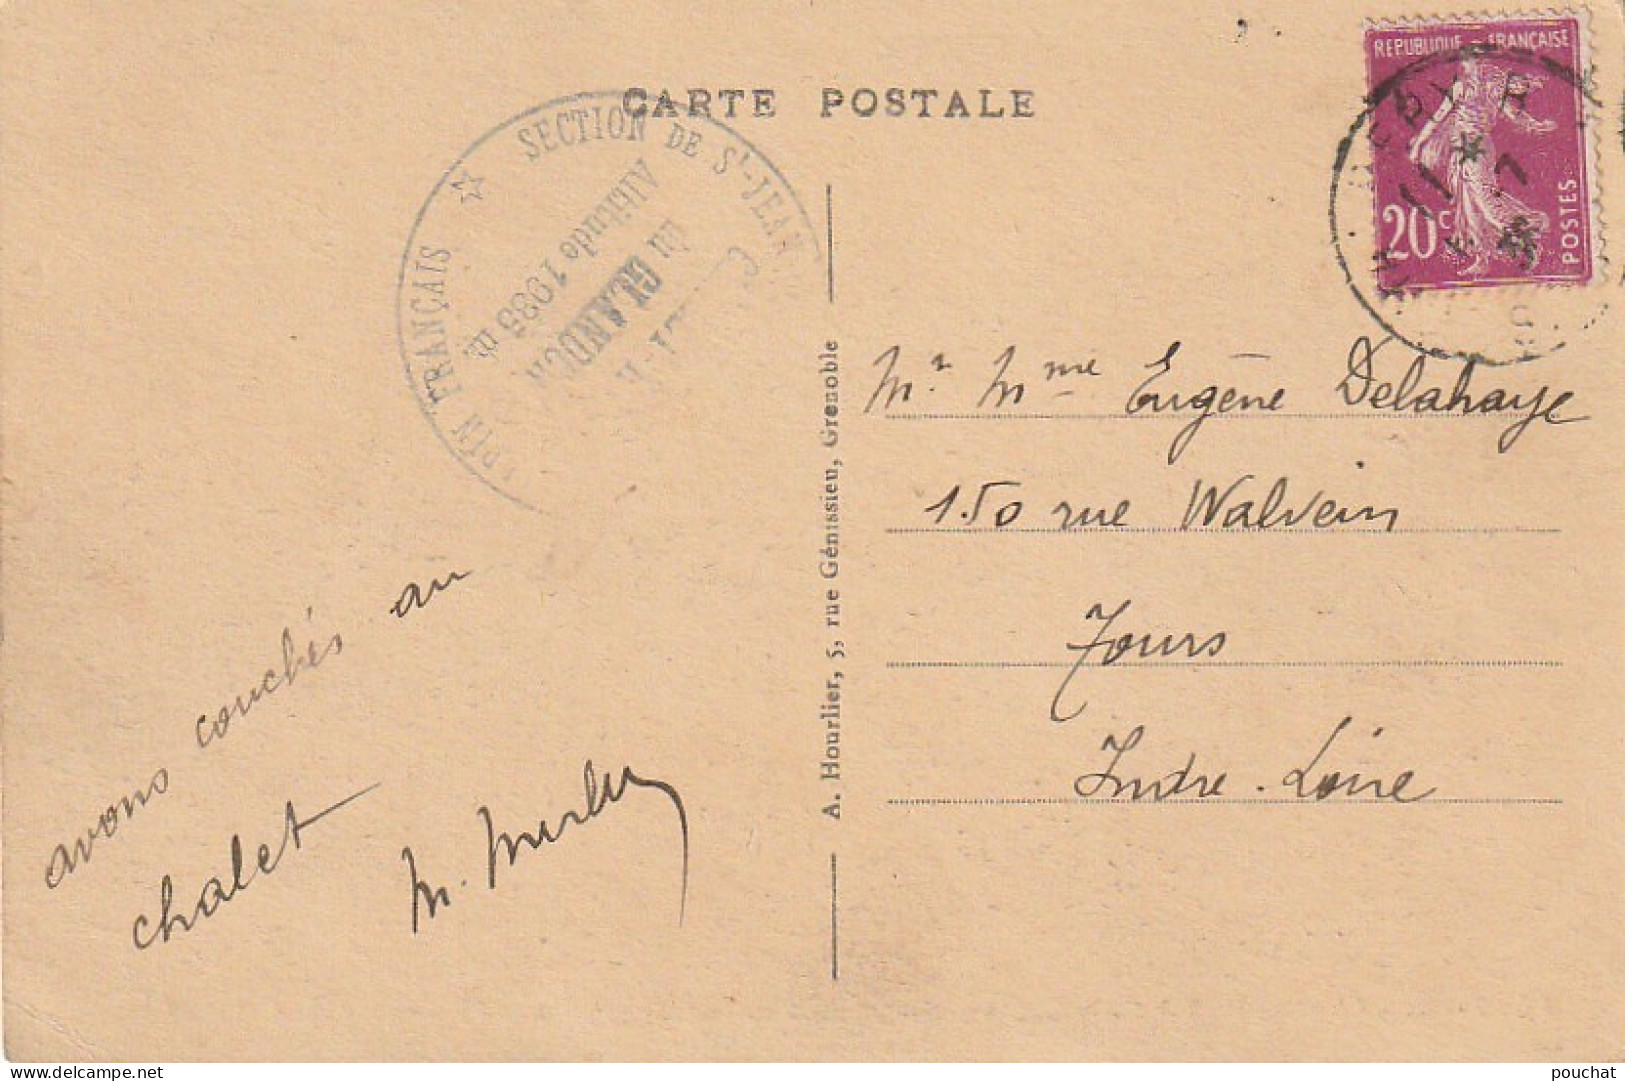 CARTE POSTALE
REPUBLIQUE FRANÇAISE
20c
POSTES
FRANÇAIS ☆ SECTION DE St-JEAN
du GLANDON
Altitude 1985 m.
Mr Mme Eugène Delahaye
150 rue Walvein
Tours
Indre-Loire
avons couchés au
chalet
M.
A. Hourlier, 5, rue Génissieu, Grenoble
delcampe.net
pouchat